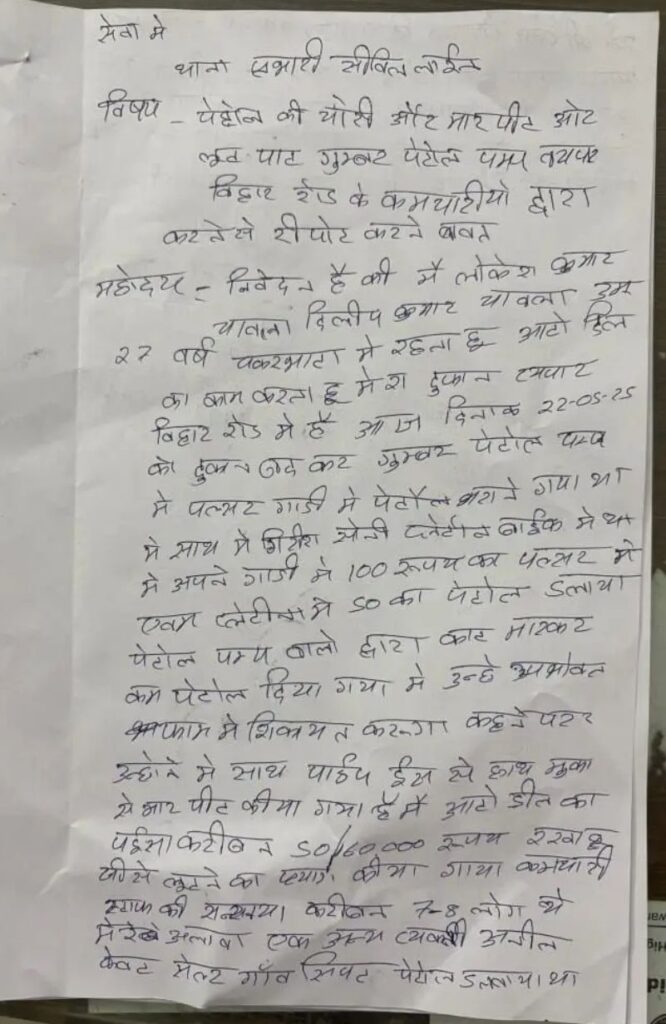 सेवा मे
थाना प्रभारी सीविल लाईन
विषय - पेट्रोल की चोरी और मारपीट ओट
लूट पाट गुम्बर पेटोल पम्प व्यपार
विहार रोड के कर्मचारीयो द्वारा
करने से रीपोट करने बाबत
महोदय - निवेदन है की मै लोकेश कुमार
चावला दिलीप कुमार चावला उम्र
27 वर्ष चकरभाटा मे रहता हू आटो डिल
का काम करता हू मेरा दुकान व्यपार
विहार रोड मे है आज दिनाक 22-05-25
को दुकान बंद कर गुम्बर पेटोल पम्प
मे पल्सर गाडी मे पेटोल भराने गया था
मे साथ मे सोनी प्लेटीना बाईक मे था
मे अपने गाडी मे 100 रूपय का पल्सर मे
एवम प्लेटीना मे 50 का पेटोल डलाया
पेटोल पम्प वालो द्वारा काट मारकर
कम पेटोल दिया गया मे उन्हे उपभोक्त
फाम मे शिकायत करूगा कहने पर
उन्होने मे साथ पाईप ईट से हाथ मुक्का
से मार पीट कीया गया है मै आटो डील का
पईसा करीबन 50/60,000 रूपय रखा हू
जीसे लूटने का प्रयास कीया गया कर्मचारी
स्टाफ की सन्ख्या करीबन 7-8 लोग थे
मेरे अलावा एक अन्य व्यक्ती अनील
केवट सेलर गाँव सिपट पेटोल डलवाया था